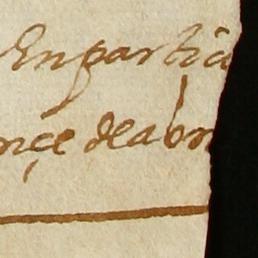 En partic
nçe de abr